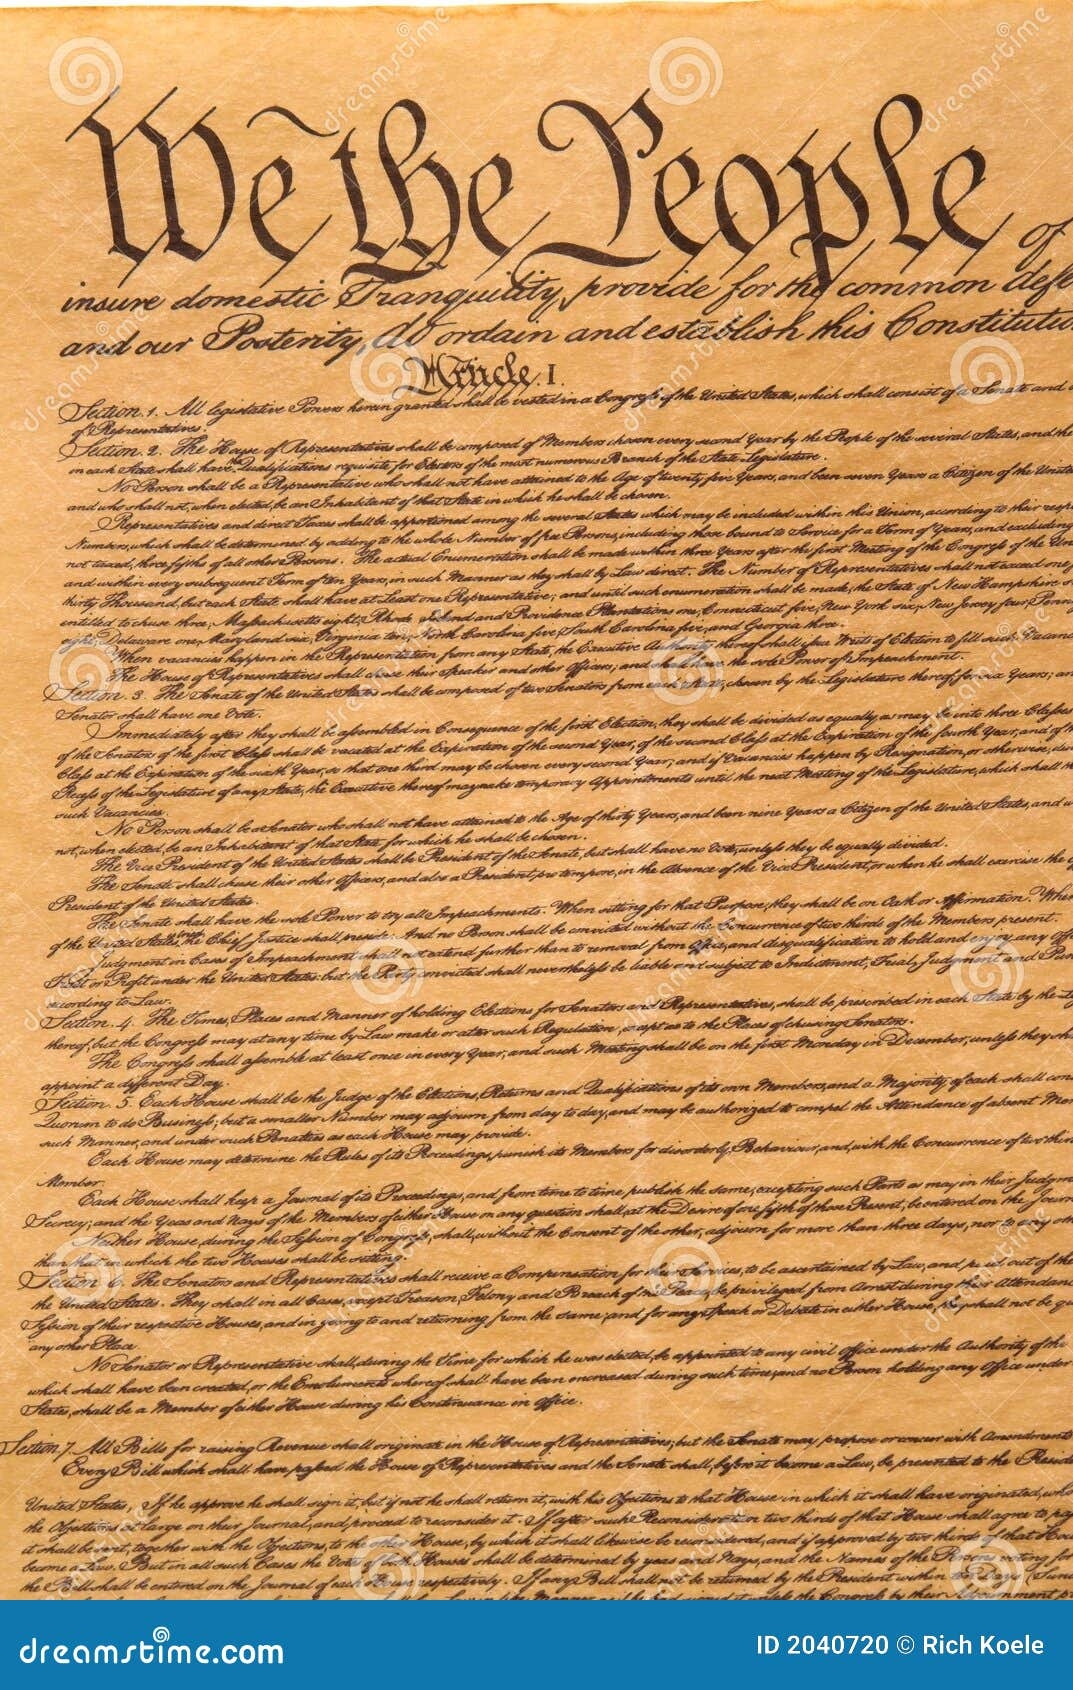 We the People of
insure domestic Tranquility, provide for the common defe
and our Posterity, do ordain and establish this Constitutio
Article. I.
Section. 1. All legislative Powers herein granted shall be vested in a Congress of the United States, which shall consist of a Senate and
of Representatives.
Section. 2. The House of Representatives shall be composed of Members chosen every second Year by the People of the several States, and the
in each State shall have the Qualifications requisite for Electors of the most numerous Branch of the State Legislature.
No Person shall be a Representative who shall not have attained to the Age of twenty five Years, and been seven Years a Citizen of the United
and who shall not, when elected, be an Inhabitant of that State in which he shall be chosen.
Representatives and direct Taxes shall be apportioned among the several States which may be included within this Union, according to their resp
Numbers, which shall be determined by adding to the whole Number of free Persons, including those bound to Service for a Term of Years, and excluding
not taxed, three fifths of all other Persons. The actual Enumeration shall be made within three Years after the first Meeting of the Congress of the Un
and within every subsequent Term of ten Years, in such Manner as they shall by Law direct. The Number of Representatives shall not exceed one
thirty Thousand, but each State shall have at Least one Representative; and until such enumeration shall be made, the State of New Hampshire s
entitled to chuse three, Massachusetts eight, Rhode Island and Providence Plantations one, Connecticut five, New York six, New Jersey four, Penn
eight, Delaware one, Maryland six, Virginia ten, North Carolina five, South Carolina five, and Georgia three.
When vacancies happen in the Representation from any State, the Executive Authority thereof shall issue Writs of Election to fill such Vacanc
The House of Representatives shall chuse their Speaker and other Officers; and shall have the sole Power of Impeachment.
Section. 3. The Senate of the United States shall be composed of two Senators from each State, chosen by the Legislature thereof, for six Years; an
Senator shall have one Vote.
Immediately after they shall be assembled in Consequence of the first Election, they shall be divided as equally as may be into three Classes
of the Senators of the first Class shall be vacated at the Expiration of the second Year, of the second Class at the Expiration of the fourth Year, and of th
Class at the Expiration of the sixth Year, so that one third may be chosen every second Year; and if Vacancies happen by Resignation, or otherwise, du
Recess of the Legislature of any State, the Executive thereof may make temporary Appointments until the next Meeting of the Legislature, which shall th
such Vacancies.
No Person shall be a Senator who shall not have attained to the Age of thirty Years, and been nine Years a Citizen of the United States, and w
not, when elected, be an Inhabitant of that State for which he shall be chosen.
The Vice President of the United States shall be President of the Senate, but shall have no Vote, unless they be equally divided.
The Senate shall chuse their other Officers, and also a President pro tempore, in the Absence of the Vice President, or when he shall exercise the
President of the United States.
The Senate shall have the sole Power to try all Impeachments. When sitting for that Purpose, they shall be on Oath or Affirmation. When
of the United States is tried, the Chief Justice shall preside: And no Person shall be convicted without the Concurrence of two thirds of the Members present.
Judgment in Cases of Impeachment shall not extend further than to removal from Office, and disqualification to hold and enjoy any Offi
Trust or Profit under the United States: but the Party convicted shall nevertheless be liable and subject to Indictment, Trial, Judgment and Pun
according to Law.
Section. 4. The Times, Places and Manner of holding Elections for Senators and Representatives, shall be prescribed in each State by the L
thereof; but the Congress may at any time by Law make or alter such Regulation, except as to the Places of chusing Senators.
The Congress shall assemble at least once in every Year, and such Meeting shall be on the first Monday in December, unless they sh
appoint a different Day.
Section. 5. Each House shall be the Judge of the Elections, Returns and Qualifications of its own Members, and a Majority of each shall con
Quorum to do Business; but a smaller Number may adjourn from day to day, and may be authorized to compel the Attendance of absent Mem
such Manner, and under such Penalties as each House may provide.
Each House may determine the Rules of its Proceedings, punish its Members for disorderly Behaviour, and, with the Concurrence of two thir
Member.
Each House shall keep a Journal of its Proceedings, and from time to time publish the same, excepting such Parts as may in their Judgm
Secrecy; and the Yeas and Nays of the Members of either House on any question shall, at the Desire of one fifth of those Present, be entered on the Journ
Neither House, during the Session of Congress, shall, without the Consent of the other, adjourn for more than three days, nor to any oth
than that in which the two Houses shall be sitting.
Section. 6. The Senators and Representatives shall receive a Compensation for their Services, to be ascertained by Law, and paid out of the
the United States. They shall in all Cases, except Treason, Felony and Breach of the Peace, be privileged from Arrest during their Attendan
Session of their respective Houses, and in going to and returning from the same; and for any Speech or Debate in either House, they shall not be qu
any other Place.
No Senator or Representative shall, during the Time for which he was elected, be appointed to any civil Office under the Authority of the
which shall have been created, or the Emoluments whereof shall have been encreased during such time; and no Person holding any Office under
States, shall be a Member of either House during his Continuance in Office.
Section. 7. All Bills for raising Revenue shall originate in the House of Representatives; but the Senate may propose or concur with Amendments
Every Bill which shall have passed the House of Representatives and the Senate, shall, before it become a Law, be presented to the Presid
United States; If he approve he shall sign it, but if not he shall return it, with his Objections to that House in which it shall have originated, who
the Objections at large on their Journal, and proceed to reconsider it. If after such Reconsideration two thirds of that House shall agree to pa
it shall be sent, together with the Objections, to the other House, by which it shall likewise be reconsidered, and if approved by two thirds of that Hou
become a Law. But in all such Cases the Votes of both Houses shall be determined by yeas and Nays, and the Names of the Persons voting for
the Bill shall be entered on the Journal of each House respectively. If any Bill shall not be returned by the President within ten Days (Sun
dreamstime.com
ID 2040720 © Rich Koele